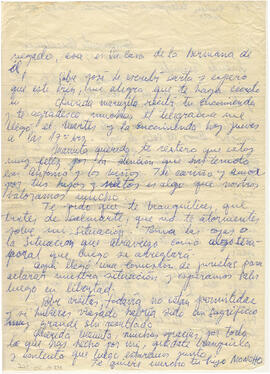 negado, esa es la casa de la hermana de
él,
Sobre José le escribí carta y espero
que esté bien, me alegra que te haya escrito
Querida mamita recibí tu encomienda
y te agradezco muchísimo el telegrama me
llegó el martes y la encomienda hoy jueves
a las 19
Mamita querida te reitero que estoy
muy feliz por la atención que has tenido
con Alfonso y los niños. Tu cariño y amor
por tus hijos y nietos es algo que nosotros
valoramos mucho
Te pido que te tranquilices, que
trates de serenarte, que no te atormentes
sobre mi situación. Toma las cosas o
la situación que atravieso como algo tempo-
ral que luego se arreglará
Aquí llegó una comisión de juristas para
aclarar nuestra situación y esperamos salir
luego en libertad
Por visitas, todavía no están permitidas
y si hubieras viajado habría sido un sacrificio
muy grande sin resultado
Querida mamita muchas gracias por todo
lo que has hecho por mí, quédate tranquila
y contenta que luego estaremos juntos
Te quiere mucho tu hijo MONCHO